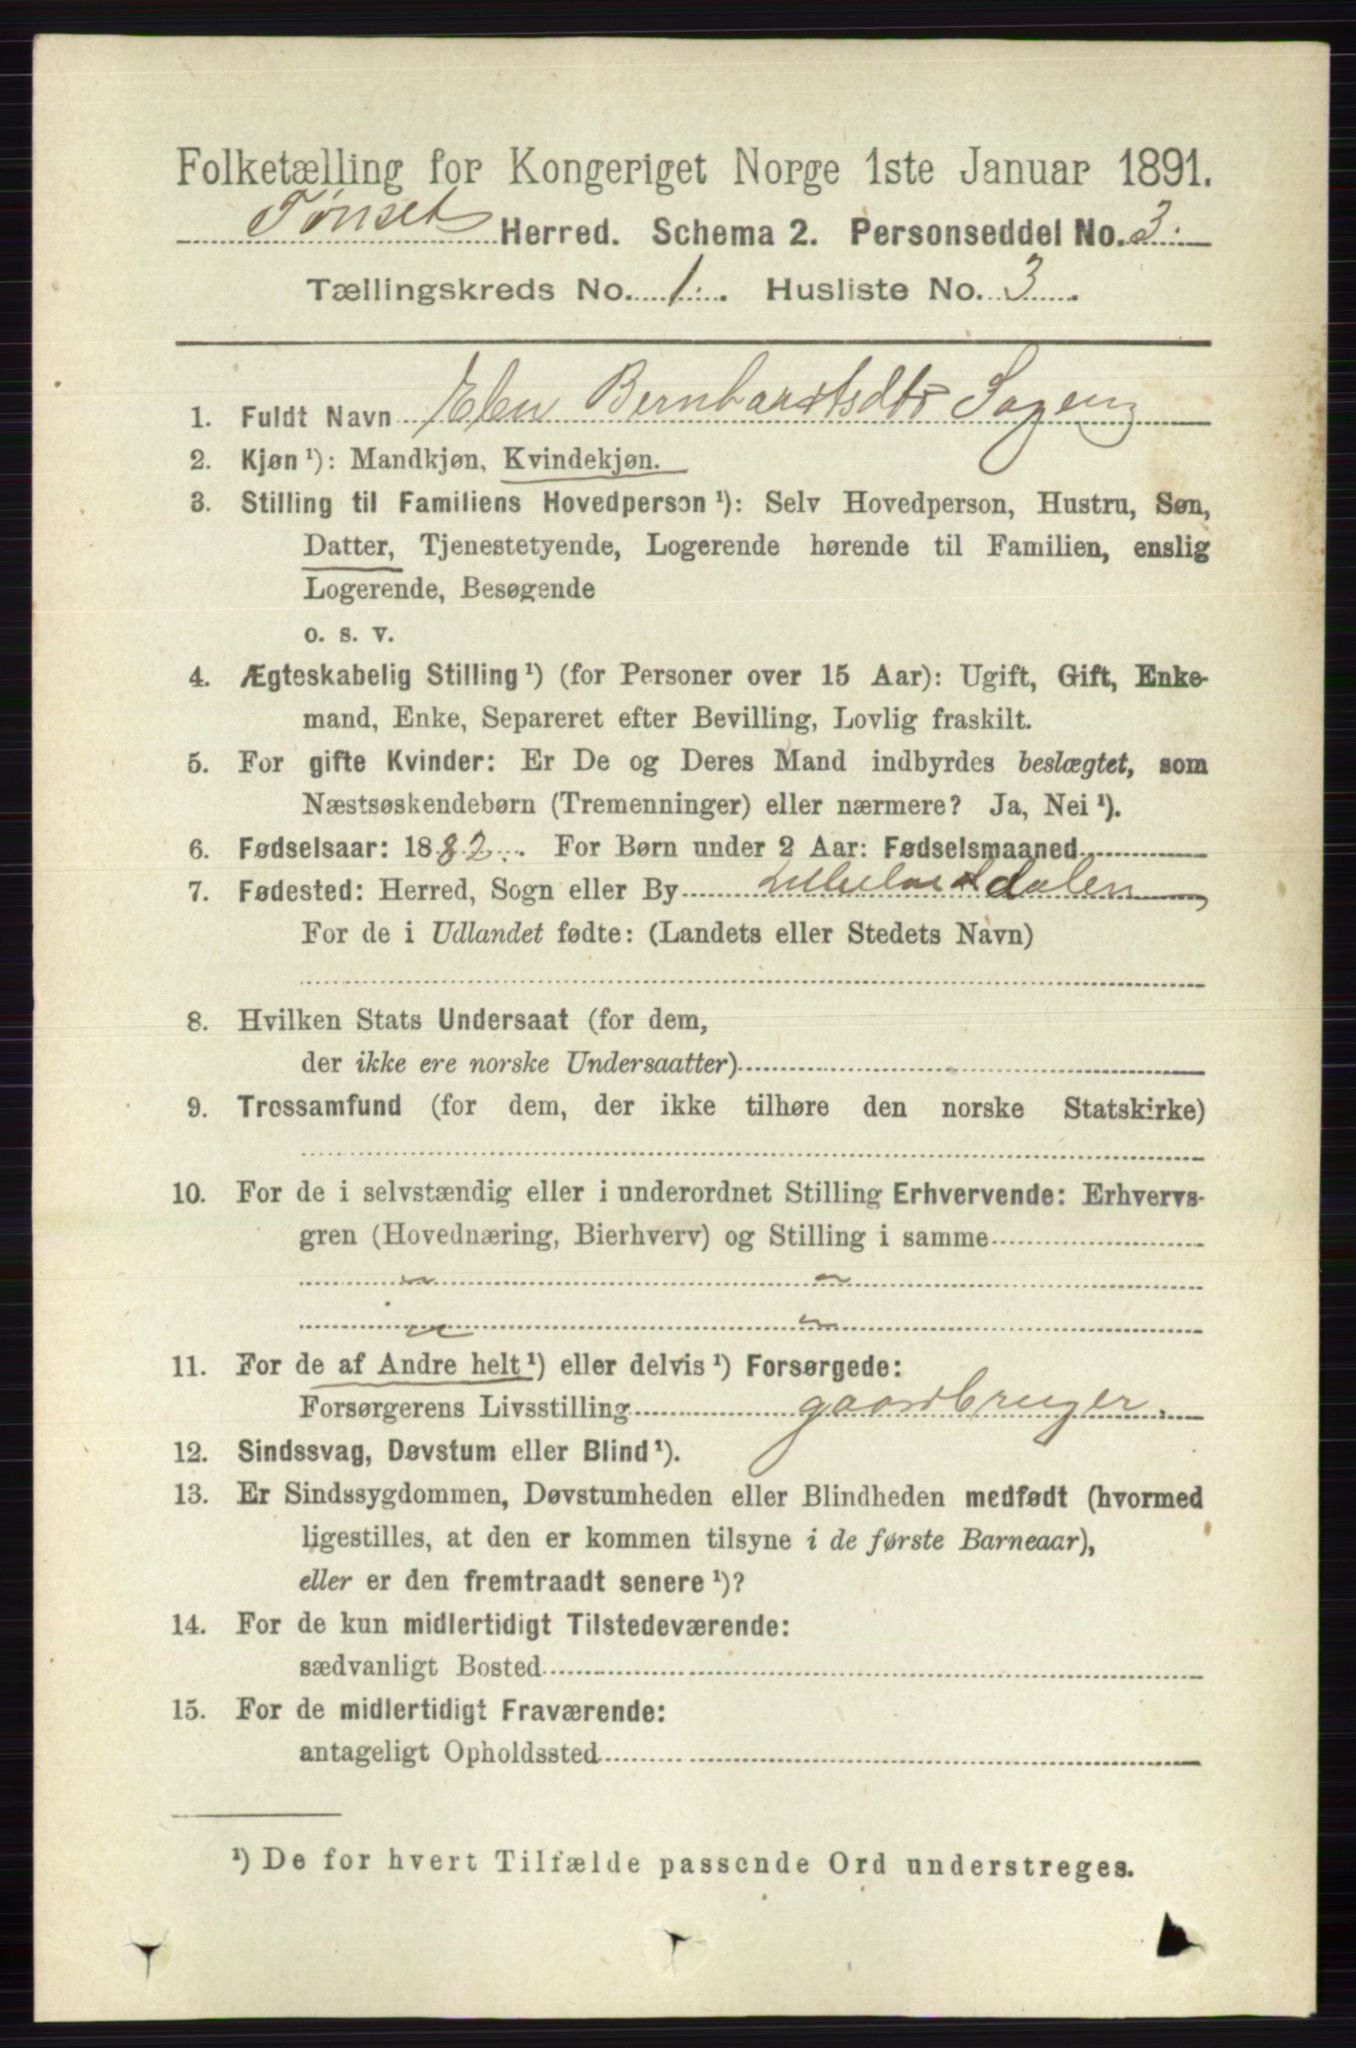 Folketælling for Kongeriget Norge 1ste Januar 1891.
Tønset Herred. Schema 2. Personseddel No. 3.
Tællingskreds No. 1. Husliste No. 3.
1. Fuldt Navn Elen Bernhardtsdtr Sagen
2. Kjøn ¹): Mandkjøn, Kvindekjøn.
3. Stilling til Familiens Hovedperson ¹): Selv Hovedperson, Hustru, Søn,
Datter, Tjenestetyende, Logerende hørende til Familien, enslig
Logerende, Besøgende
o. s. v.
4. Ægteskabelig Stilling ¹) (for Personer over 15 Aar): Ugift, Gift, Enke-
mand, Enke, Separeret efter Bevilling, Lovlig fraskilt.
5. For gifte Kvinder: Er De og Deres Mand indbyrdes beslægtet, som
Næstsøskendebørn (Tremenninger) eller nærmere? Ja, Nei ¹).
6. Fødselsaar: 1882. For Børn under 2 Aar: Fødselsmaaned
7. Fødested: Herred, Sogn eller By Lilleelvdalen
For de i Udlandet fødte: (Landets eller Stedets Navn)
8. Hvilken Stats Undersaat (for dem,
der ikke ere norske Undersaatter)
9. Trossamfund (for dem, der ikke tilhøre den norske Statskirke)
10. For de i selvstændig eller i underordnet Stilling Erhvervende: Erhvervs-
gren (Hovednæring, Bierhverv) og Stilling i samme
11. For de af Andre helt ¹) eller delvis ¹) Forsørgede:
Forsørgerens Livsstilling gaardbruger.
12. Sindssvag, Døvstum eller Blind ¹).
13. Er Sindssygdommen, Døvstumheden eller Blindheden medfødt (hvormed
ligestilles, at den er kommen tilsyne i de første Barneaar),
eller er den fremtraadt senere ¹)?
14. For de kun midlertidigt Tilstedeværende:
sædvanligt Bosted
15. For de midlertidigt Fraværende:
antageligt Opholdssted
¹) De for hvert Tilfælde passende Ord understreges.